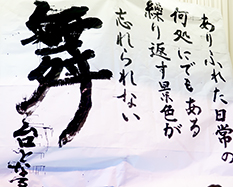 ありふれた日常の
何処にでもある
繰り返す景色が
忘れられない
舞
台となる